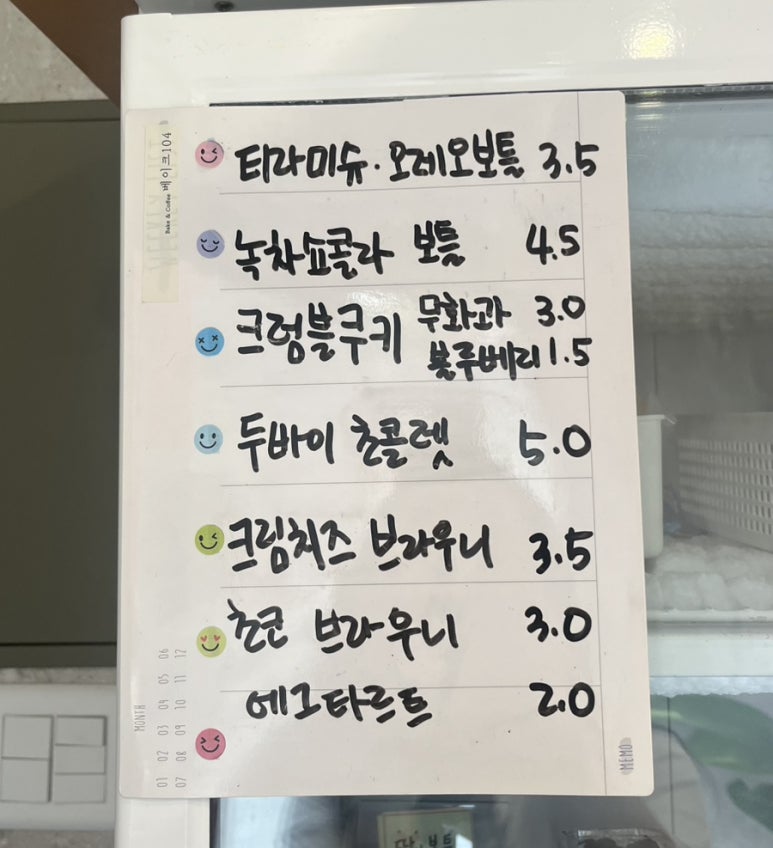 베이크104
Bake & Coffee
티라미슈·오레오보틀 3.5
녹차쇼콜라 보틀 4.5
크럼블쿠키 무화과 3.0
블루베리 1.5
두바이 초콜렛 5.0
크림치즈 브라우니 3.5
초코 브라우니 3.0
에그타르트 2.0
MONTH
01 02 03 04 05 06
07 08 09 10 11 12
MEMO